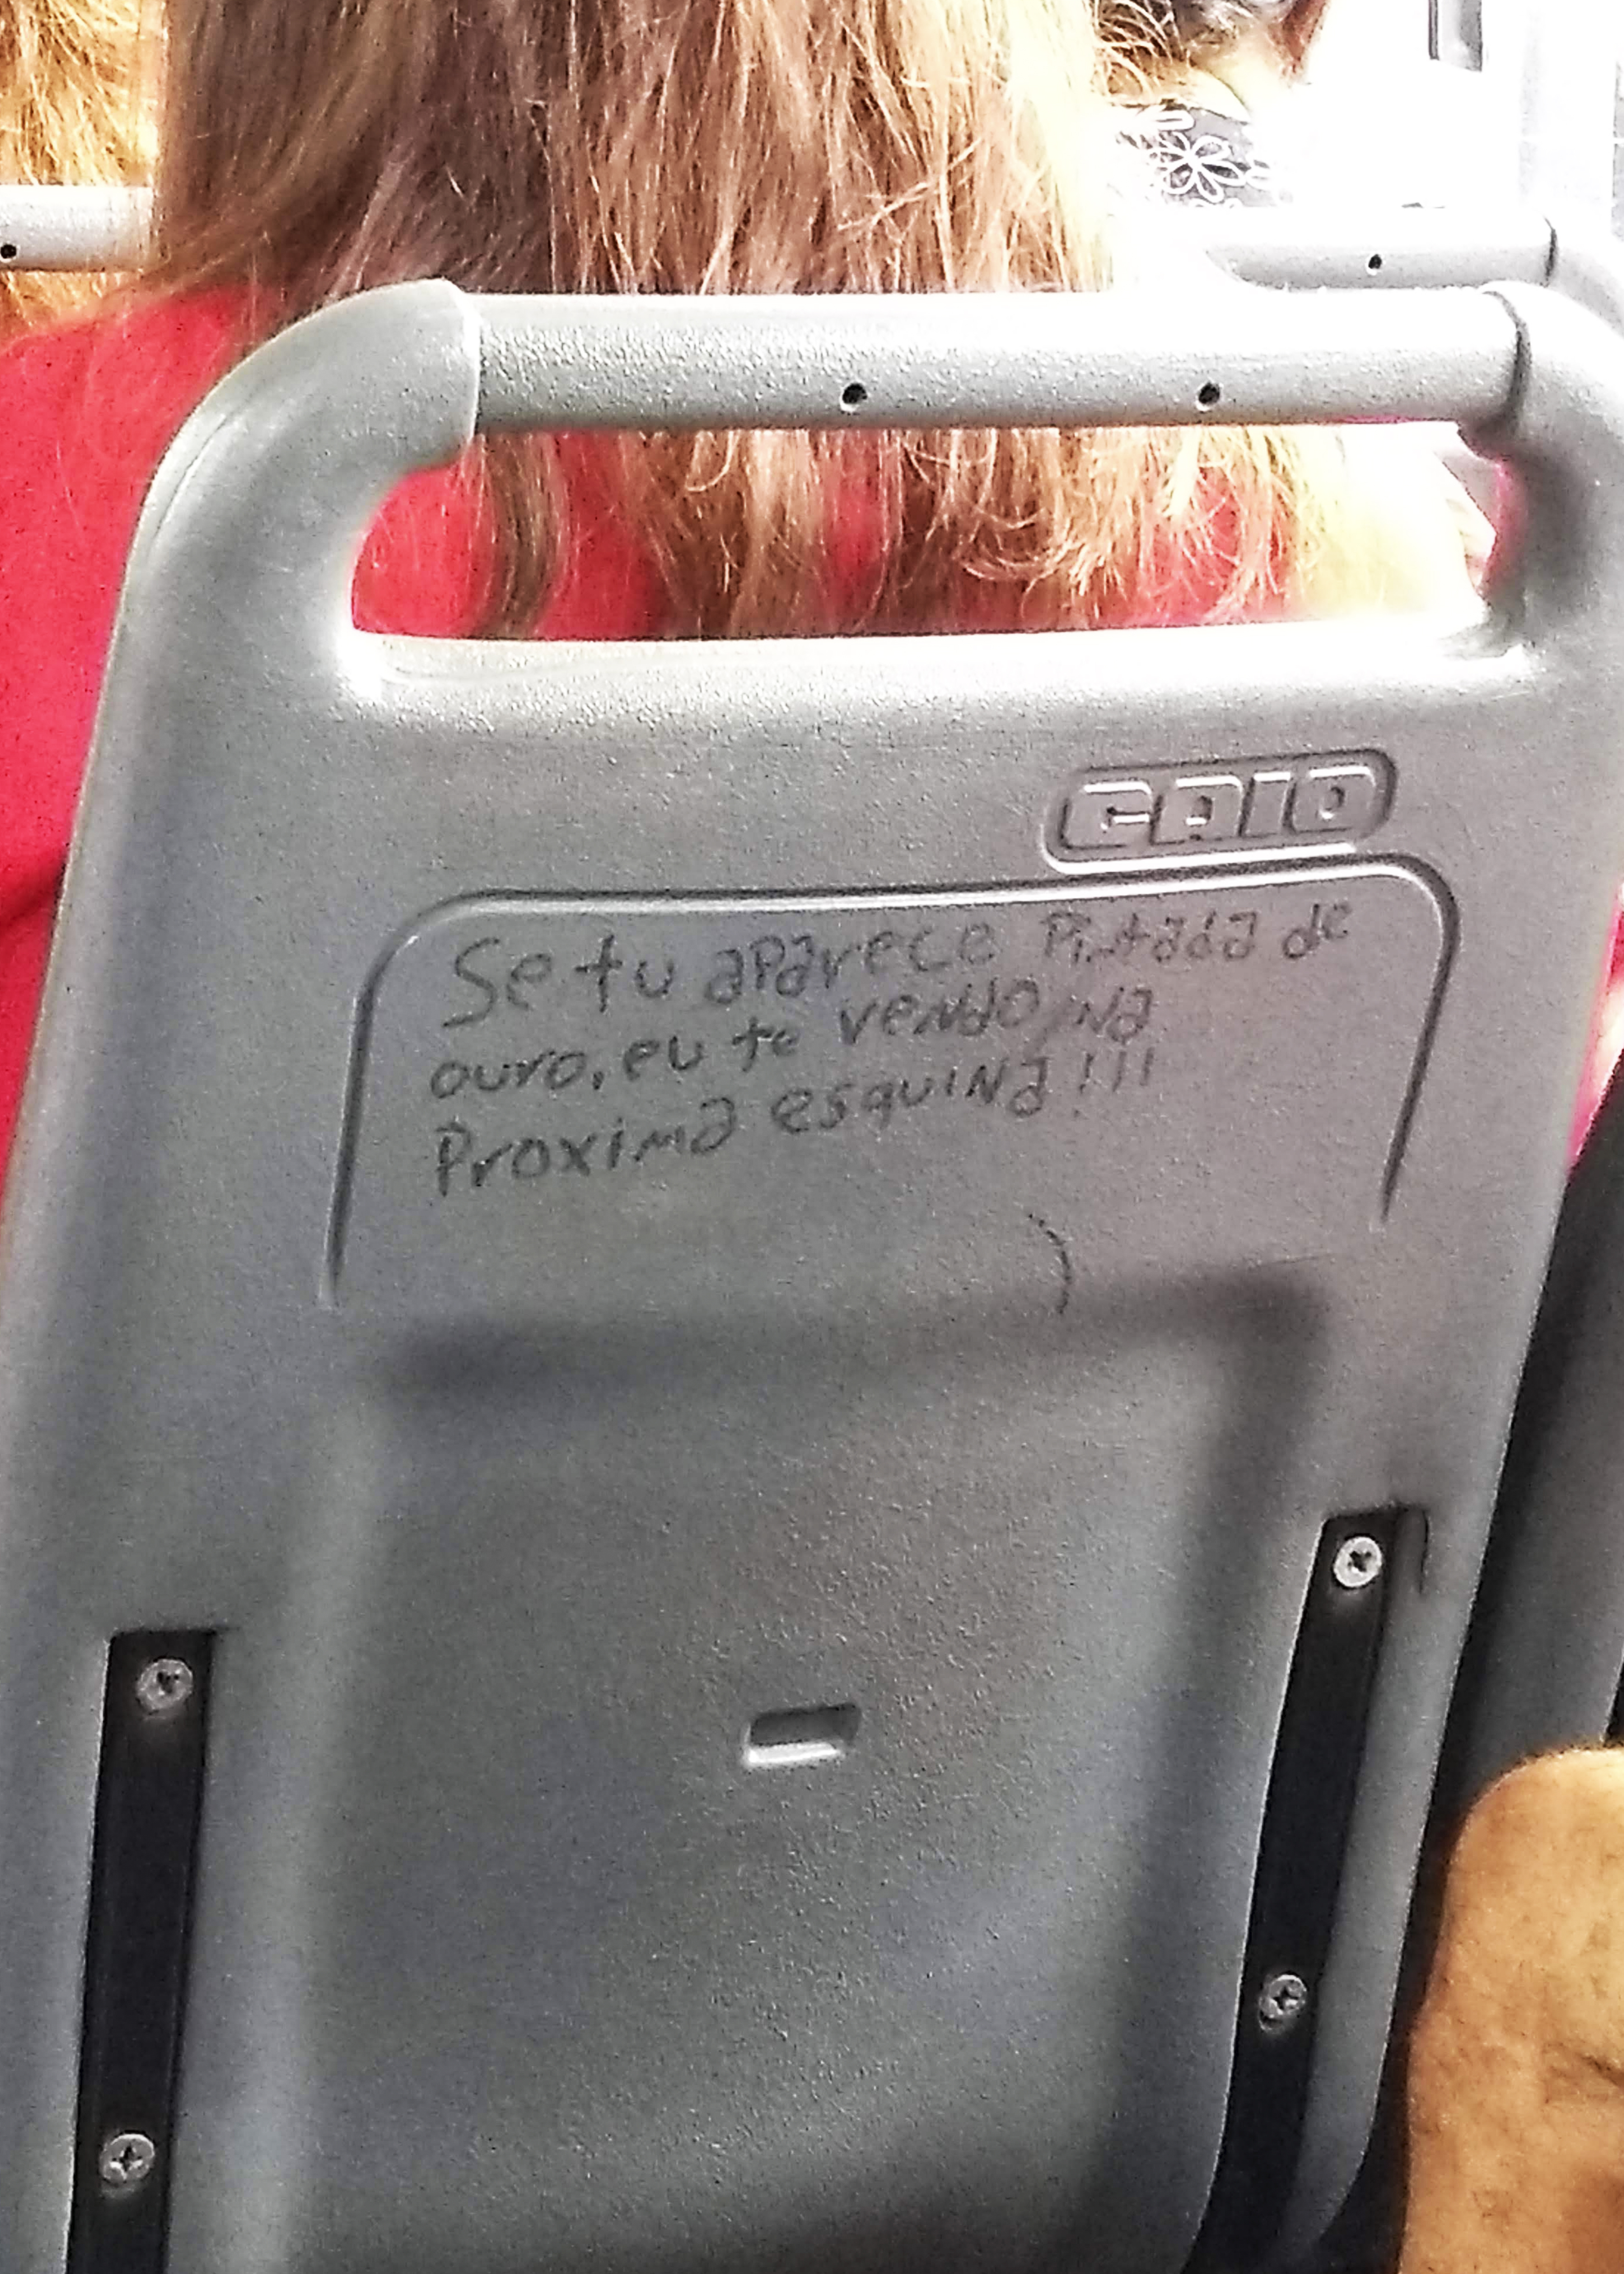 CAIO
Se tu aparece Pintada de
ouro, eu te vendo na
Proxima esquina!!!